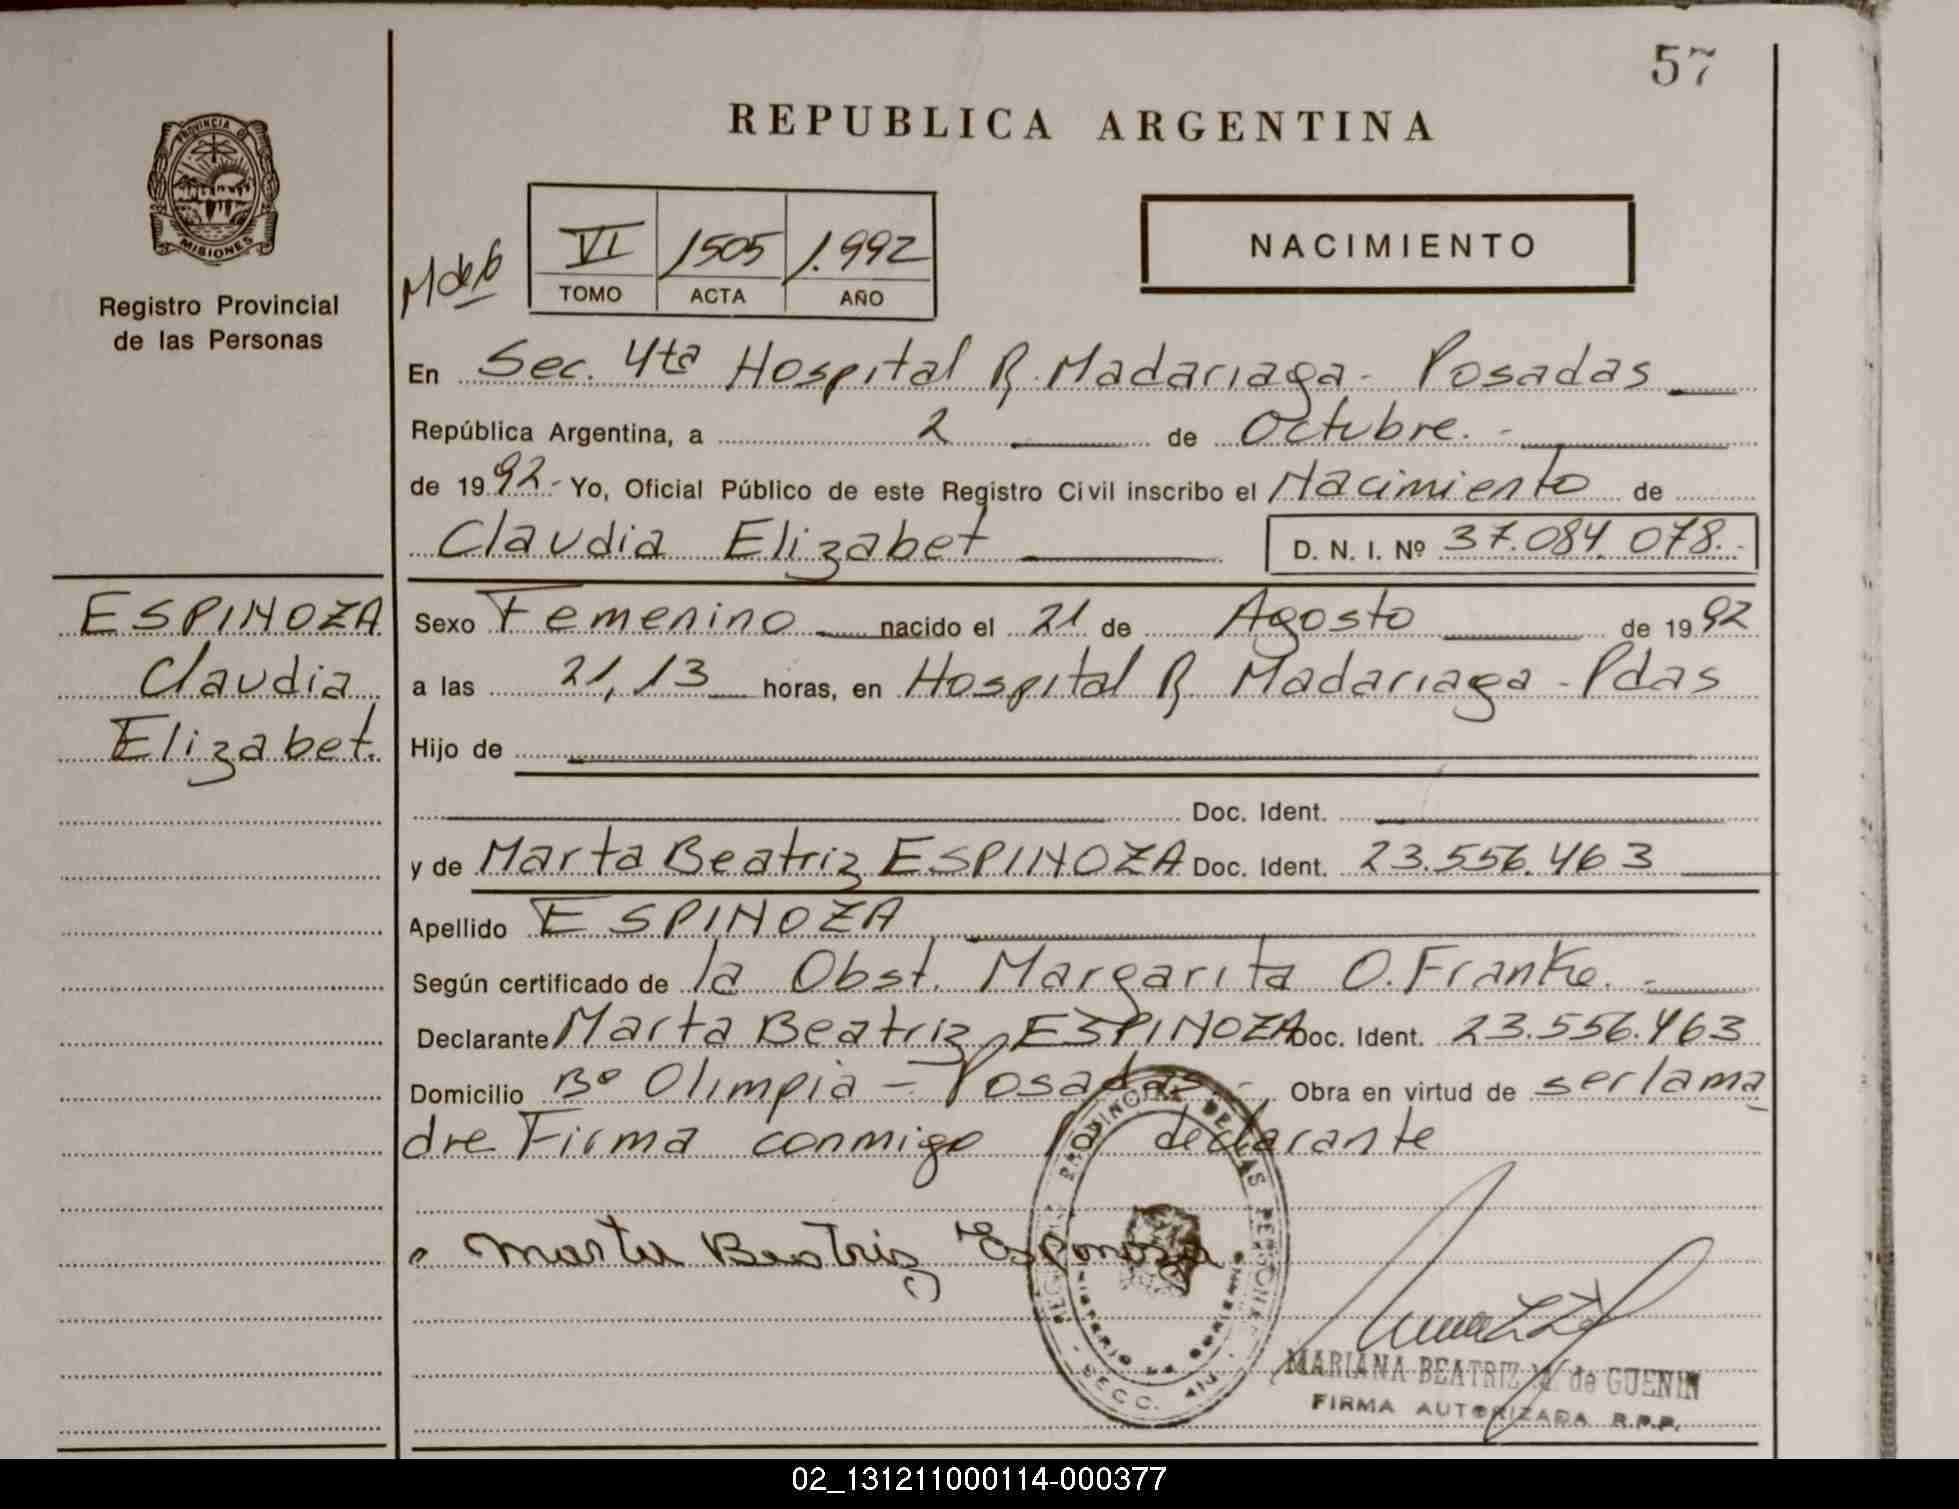 57
REPUBLICA ARGENTINA
PROVINCIA DE
MISIONES
Registro Provincial
de las Personas
VI 1505 1.992
TOMO ACTA AÑO
NACIMIENTO
En Sec. 4ta Hospital R. Madariaga - Posadas
República Argentina, a 2 de Octubre.-
de 1992.- Yo, Oficial Público de este Registro Civil inscribo el Nacimiento de
Claudia Elizabet D. N. I. Nº 37.084.078.-
ESPINOZA
Claudia
Elizabet.
Sexo Femenino nacido el 21 de Agosto de 1992
a las 21,13 horas, en Hospital R. Madariaga - Pdas
Hijo de
Doc. Ident.
y de Marta Beatriz ESPINOZA Doc. Ident. 23.556.463
Apellido ESPINOZA
Según certificado de la Obst. Margarita O. Franke.-
Declarante Marta Beatriz ESPINOZA Doc. Ident. 23.556.463
Domicilio Bº Olimpia - Posadas - Obra en virtud de ser la ma
dre Firma conmigo declarante
Marta Beatriz Espinoza
REGISTRO PROVINCIAL DE LAS PERSONAS
MINISTERIO DE GOBIERNO
SECC.
MARIANA BEATRIZ de GUENIN
FIRMA AUTORIZADA R.P.P.
02_131211000114-000377